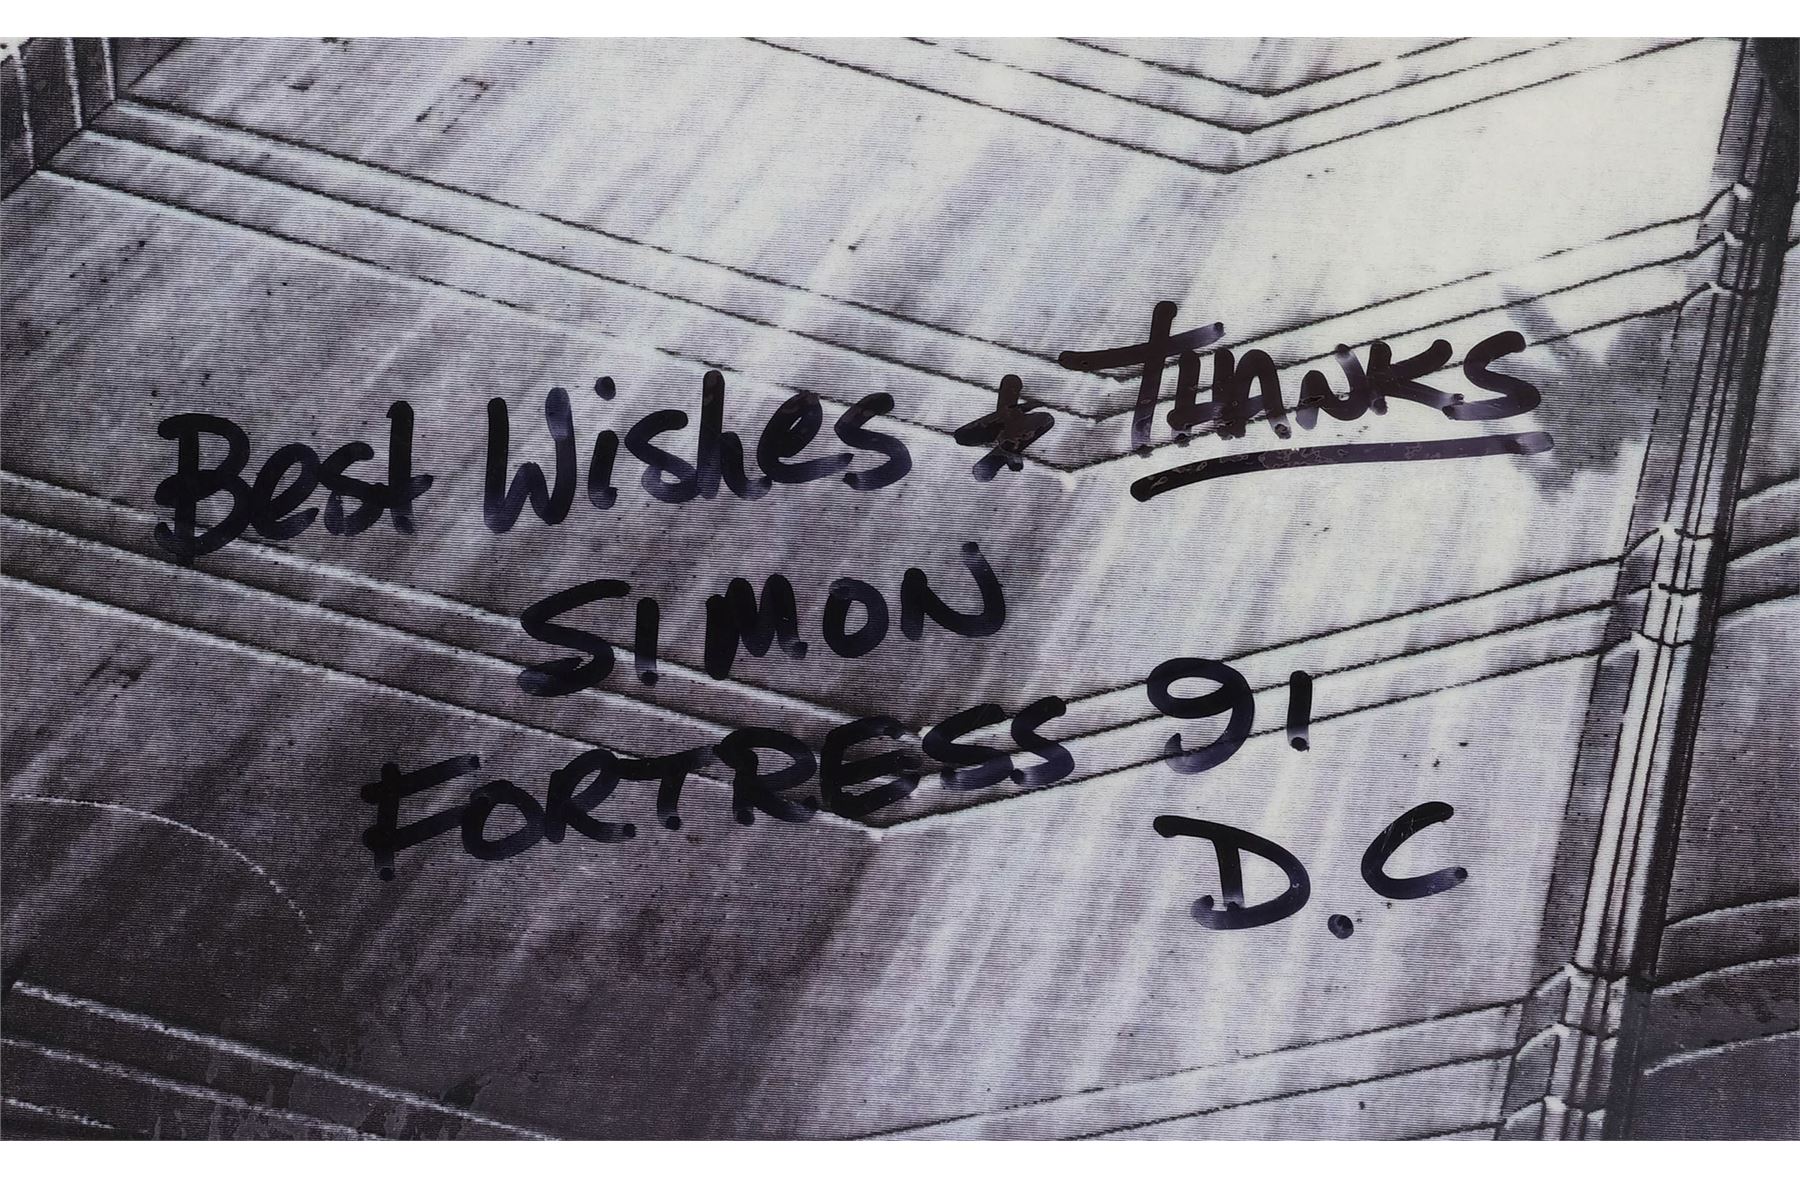 Best Wishes + THANKS
SIMON
FORTRESS 91
D.C